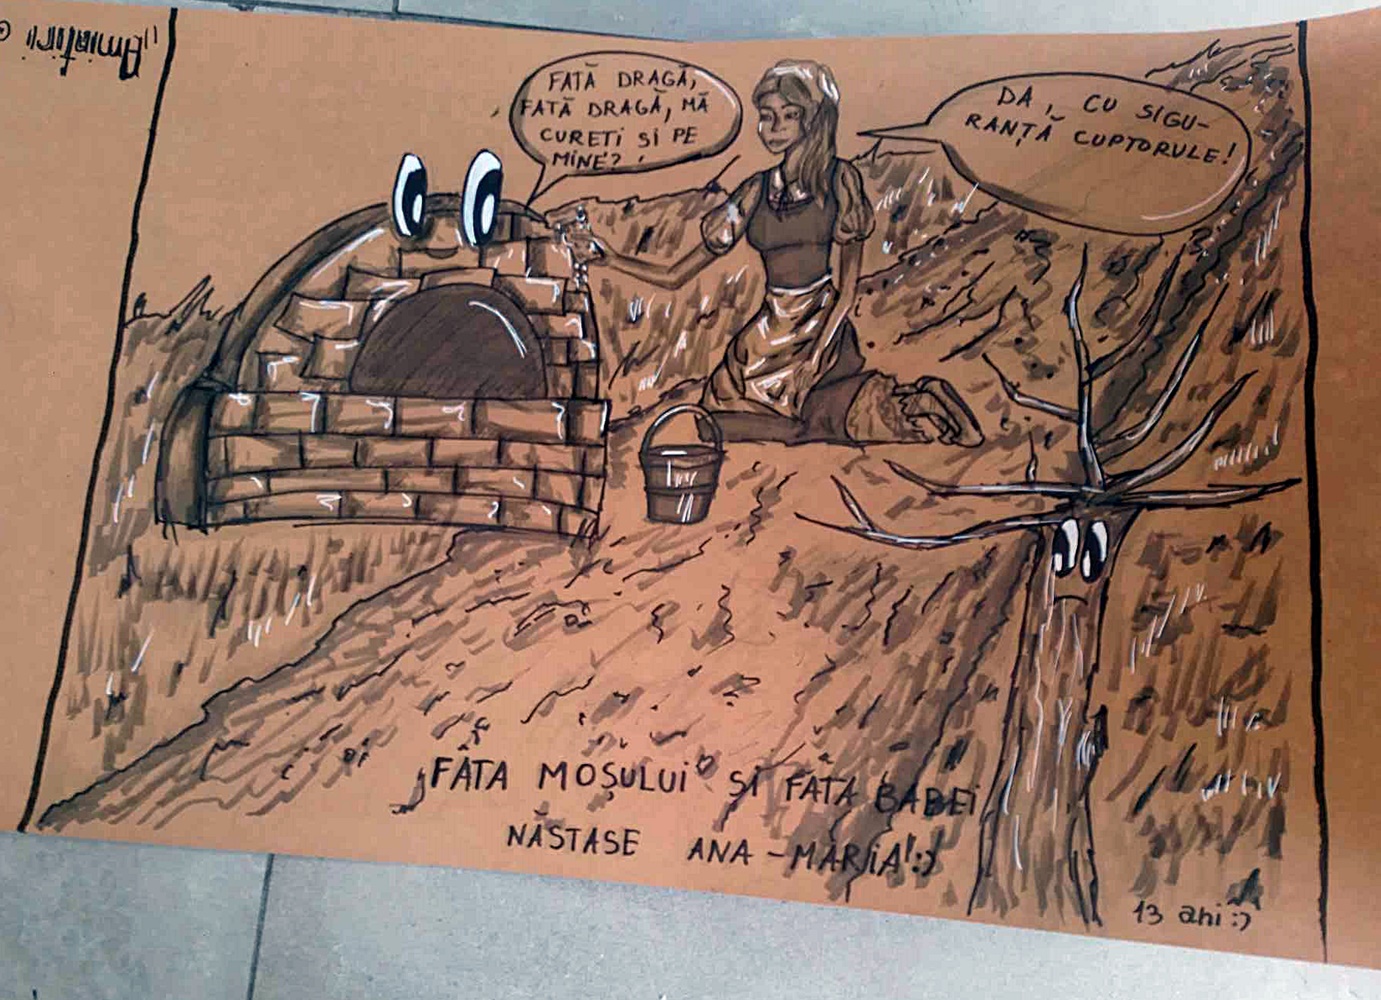 "Amintiri"
FATĂ DRAGĂ,
FATĂ DRAGĂ, MĂ
CURETI SI PE
MINE?
DA, CU SIGU-
RANȚĂ CUPTORULE!
FÂTA MOȘULUI SI FÂTA BABEI
NĂSTASE ANA-MARIA! :)
13 ani :)